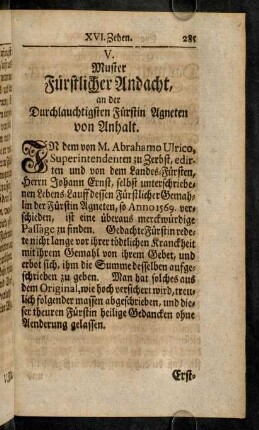 XVI. Zehen. 285
V.
Muster
Fürstlicher Andacht,
an der
Durchlauchtigsten Fürstin Agneten
von Anhalt.
IN dem von M. Abrahamo Ulrico,
Superintendenten zu Zerbst, edir-
ten und von dem Landes-Fürsten,
Herrn Johann Ernst, selbst unterschriebe-
nen Lebens-Lauff dessen Fürstlicher Gemah-
lin der Fürstin Agneten, so Anno 1569. ver-
schieden, ist eine überaus merckwürdige
Passage zu finden. Gedachte Fürstin rede-
te nicht lange vor ihrer tödtlichen Kranckheit
mit ihrem Gemahl von ihrem Gebet, und
erbot sich, ihm die Summe desselben aufge-
schrieben zu geben. Man hat solches aus
dem Original, wie hoch versichert wird, treu-
lich folgender massen abgeschrieben, und die-
ser theuren Fürstin heilige Gedancken ohne
Aenderung gelassen.
Erst-